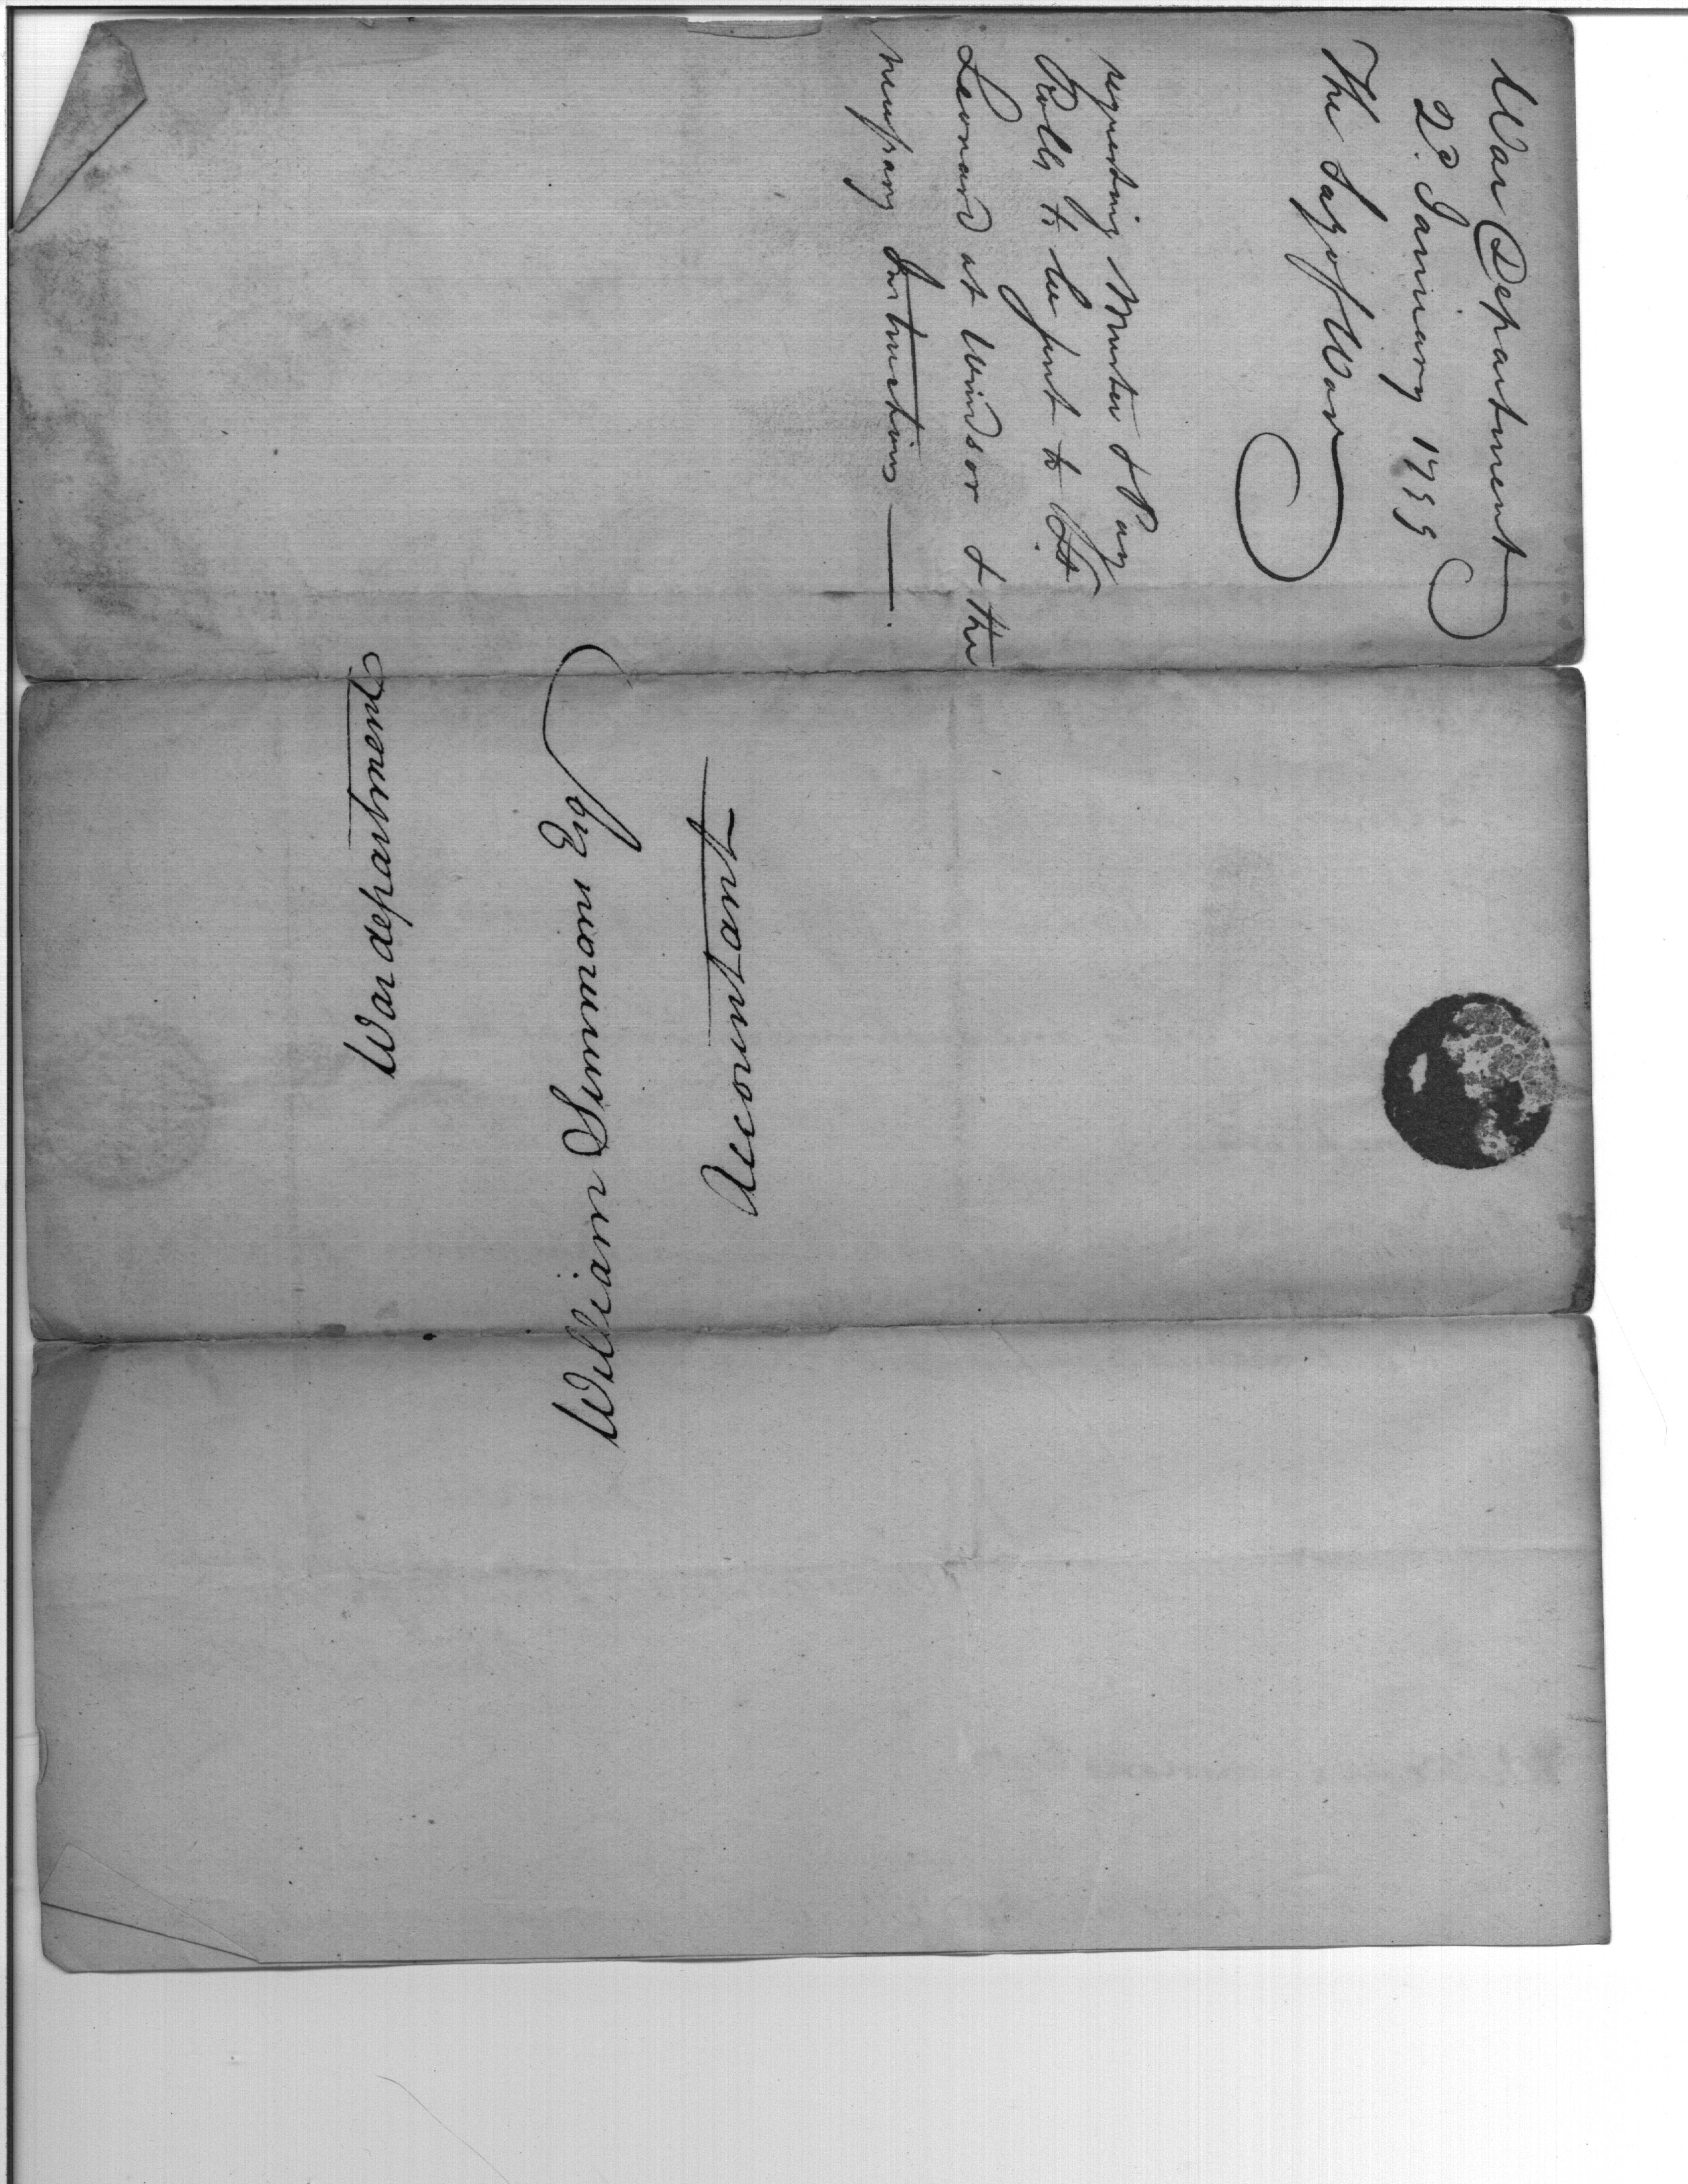 War Department
2d. January 1799
The Secy of War
requesting Muster & Pay
Rolls to be sent to Lt
Leonard at Windsor & the
necessary Instructions —
War department
William Simmons Esq
Accountant